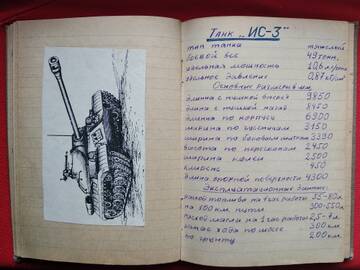 Танк „ИС-3"
тип танка тяжелый
боевой вес 49 тонн
удельная мощность 10,6 л/тонн
удельное давление 0,87 кг/см²
Основные размеры в мм
длинна с пушкой вперед 9850
длинна с пушкой назад 8450
длинна по корпусу 6900
ширина по гусеницам 3150
ширина по боковым щиткам 3390
высота по перископам 2450
ширина колеи 2500
клиренс 450
длина опорной поверхности 4300
Эксплуатационные данные:
расход топлива на 1 час работы 55-80 л
на 100 км пути 300-550 л
расход масла на 1 час работы 2,5-4 л
запас хода по шоссе 300 км
по грунту 200 км